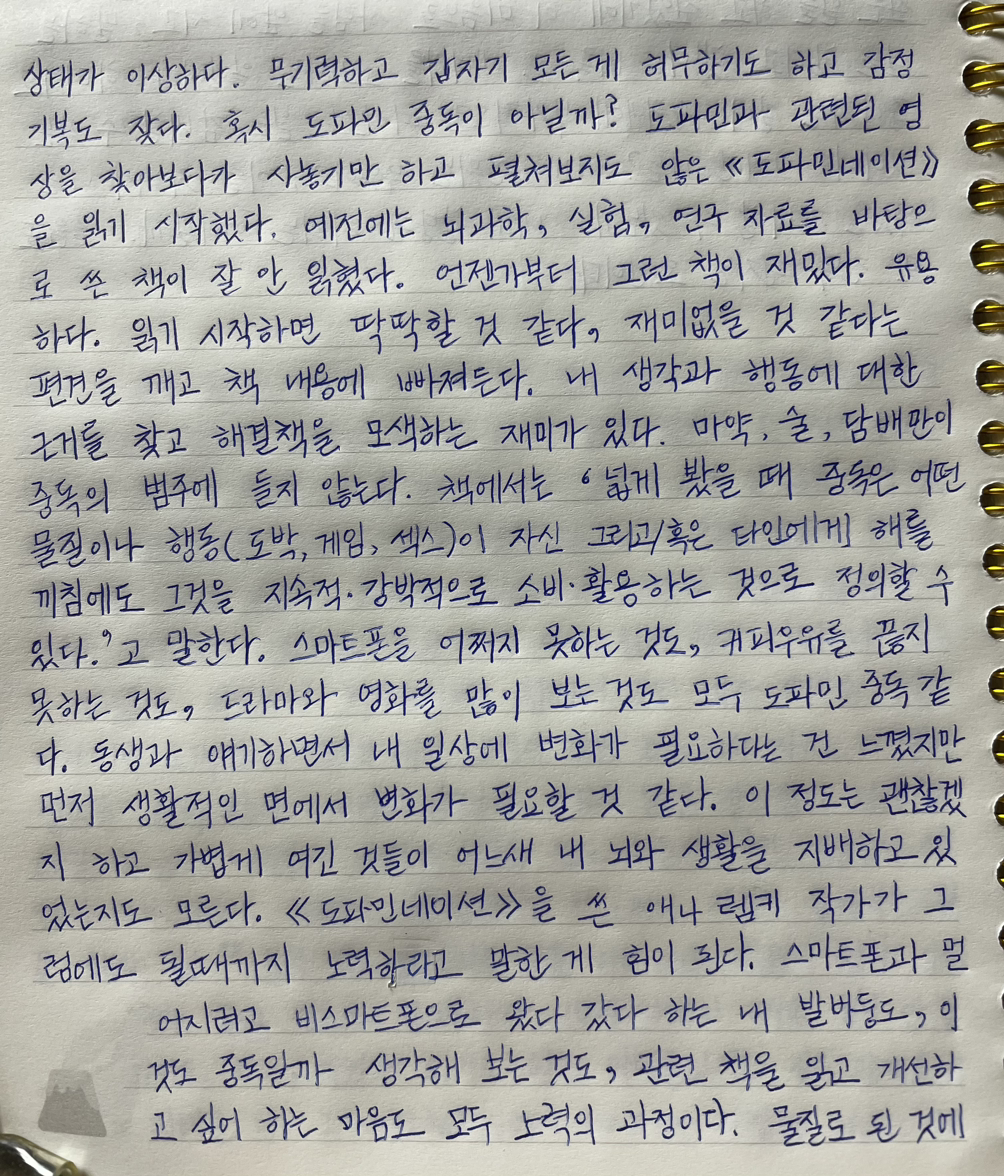 상태가 이상하다. 무기력하고 갑자기 모든 게 허무하기도 하고 감정
기복도 잦다. 혹시 도파민 중독이 아닐까? 도파민과 관련된 영
상을 찾아보다가 사놓기만 하고 펼쳐보지도 않은 《도파민네이션》
을 읽기 시작했다. 예전에는 뇌과학, 실험, 연구 자료를 바탕으
로 쓴 책이 잘 안 읽혔다. 언젠가부터 그런 책이 재밌다. 유용
하다. 읽기 시작하면 딱딱할 것 같다, 재미없을 것 같다는
편견을 깨고 책 내용에 빠져든다. 내 생각과 행동에 대한
근거를 찾고 해결책을 모색하는 재미가 있다. 마약, 술, 담배만이
중독의 범주에 들지 않는다. 책에서는 '넓게 봤을 때 중독은 어떤
물질이나 행동(도박, 게임, 섹스)이 자신 그리고/혹은 타인에게 해를
끼침에도 그것을 지속적·강박적으로 소비·활용하는 것으로 정의할 수
있다.'고 말한다. 스마트폰을 어쩌지 못하는 것도, 커피우유를 끊지
못하는 것도, 드라마와 영화를 많이 보는 것도 모두 도파민 중독 같
다. 동생과 얘기하면서 내 일상에 변화가 필요하다는 건 느꼈지만
먼저 생활적인 면에서 변화가 필요할 것 같다. 이 정도는 괜찮겠
지 하고 가볍게 여긴 것들이 어느새 내 뇌와 생활을 지배하고 있
었는지도 모른다. 《도파민네이션》을 쓴 애나 렘키 작가가 그
럼에도 될때까지 노력하라고 말한 게 힘이 된다. 스마트폰과 멀
어지려고 비스마트폰으로 왔다 갔다 하는 내 발버둥도, 이
것도 중독일까 생각해 보는 것도, 관련 책을 읽고 개선하
고 싶어 하는 마음도 모두 노력의 과정이다. 물질로 된 것에